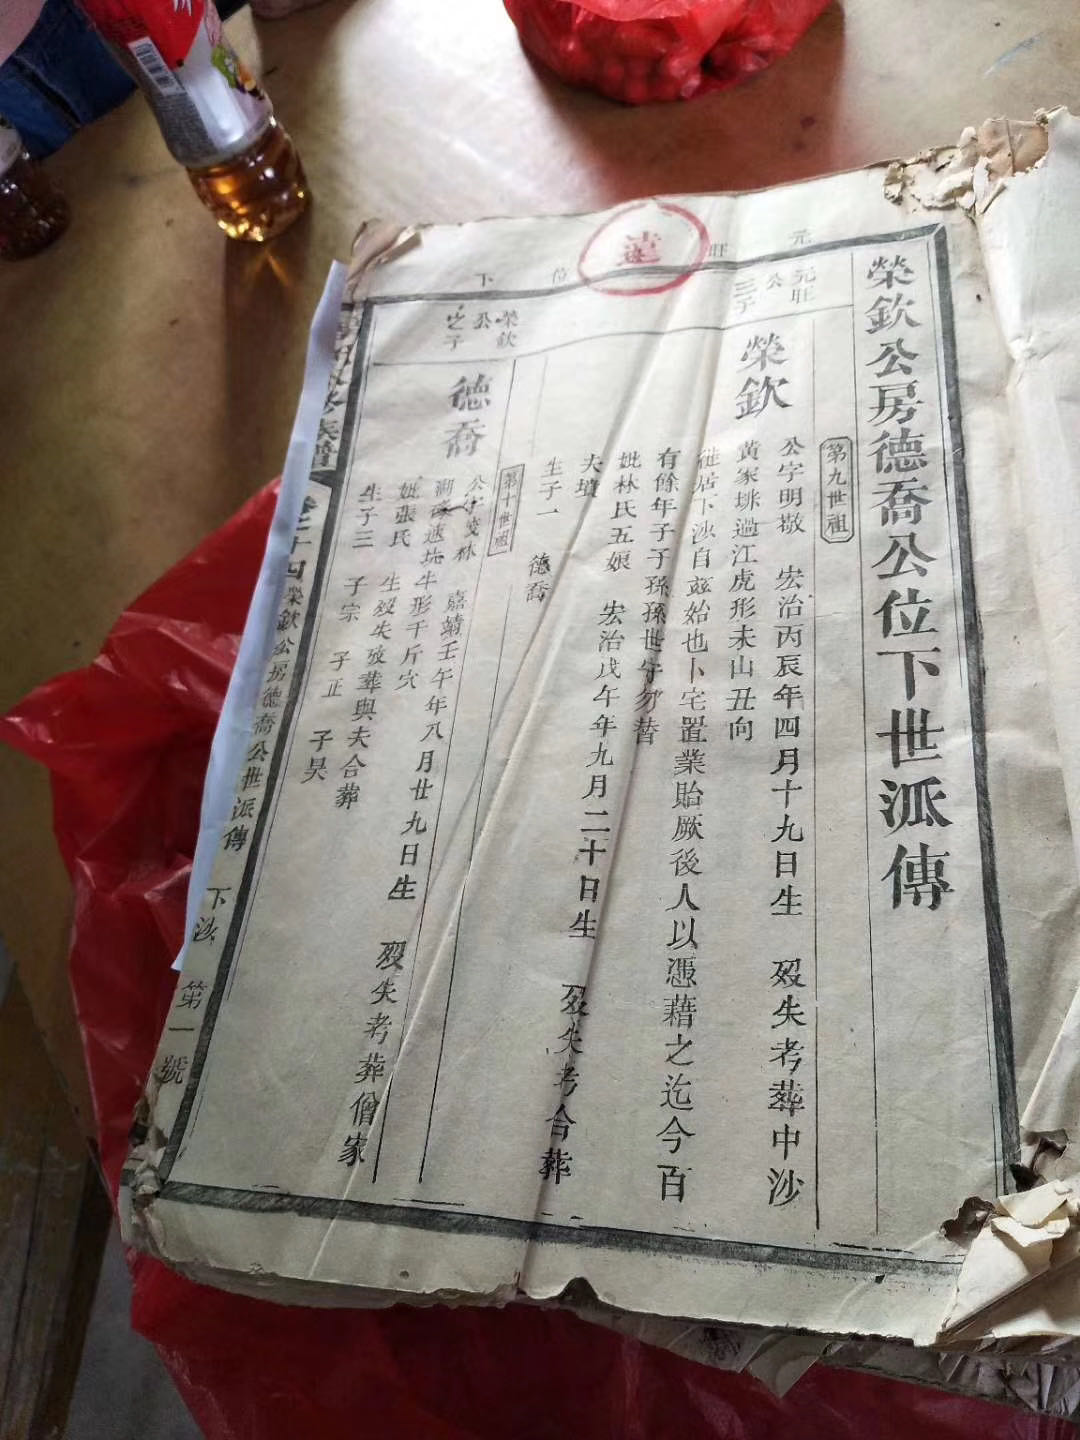 榮欽公房德喬公位下世派傳
元旺
位下
遠
元旺公三子
榮欽
第九世祖
公字明敬 宏治丙辰年四月十九日生 歿失考葬中沙
黄家垅過江虎形未山丑向
徙居下沙自兹始也卜宅置業貽厥後人以憑藉之迄今百
有餘年子子孫孫世守勿替
妣林氏五娘 宏治戊午年九月二十日生 歿失考合葬
夫墳
生子一 德喬
榮欽公之子
德喬
第十世祖
公字茂林 嘉靖壬午年八月廿九日生 歿失考葬僧家
牛形千斤穴
妣張氏 生歿失攷葬與夫合葬
生子三 子宗 子正 子昊
修族譜
卷之十四榮欽公房德喬公世派傳 下沙 第一號